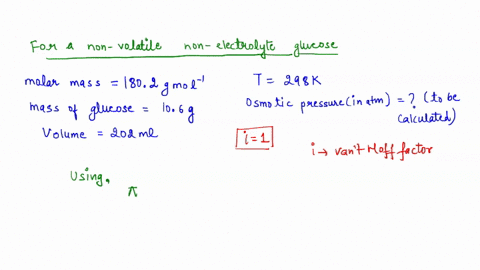 For a non-volatile non-electrolyte glucose
molar mass = 180.2 g mol⁻¹
T = 298K
mass of glucose = 10.6g
Osmotic pressure (in atm) = ? (to be calculated)
Volume = 202 ml
i=1
i → van't Hoff factor
Using,
π